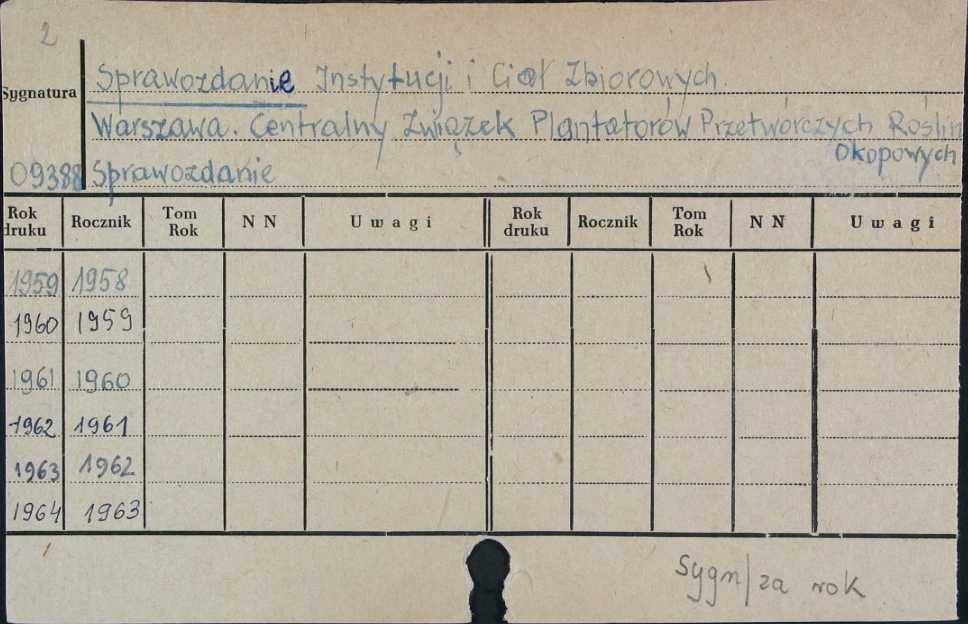 2
Sprawozdanie Instytucji i Ciał Zbiorowych.
Sygnatura
Warszawa. Centralny Związek Plantatorów Przetwórczych Roślin
Okopowych
09388 Sprawozdanie
Rok druku Rocznik Tom Rok N N Uwagi Rok druku Rocznik Tom Rok N N Uwagi
1959 1958
1960 1959
1961 1960
1962 1961
1963 1962
1964 1963
Sygn/za rok